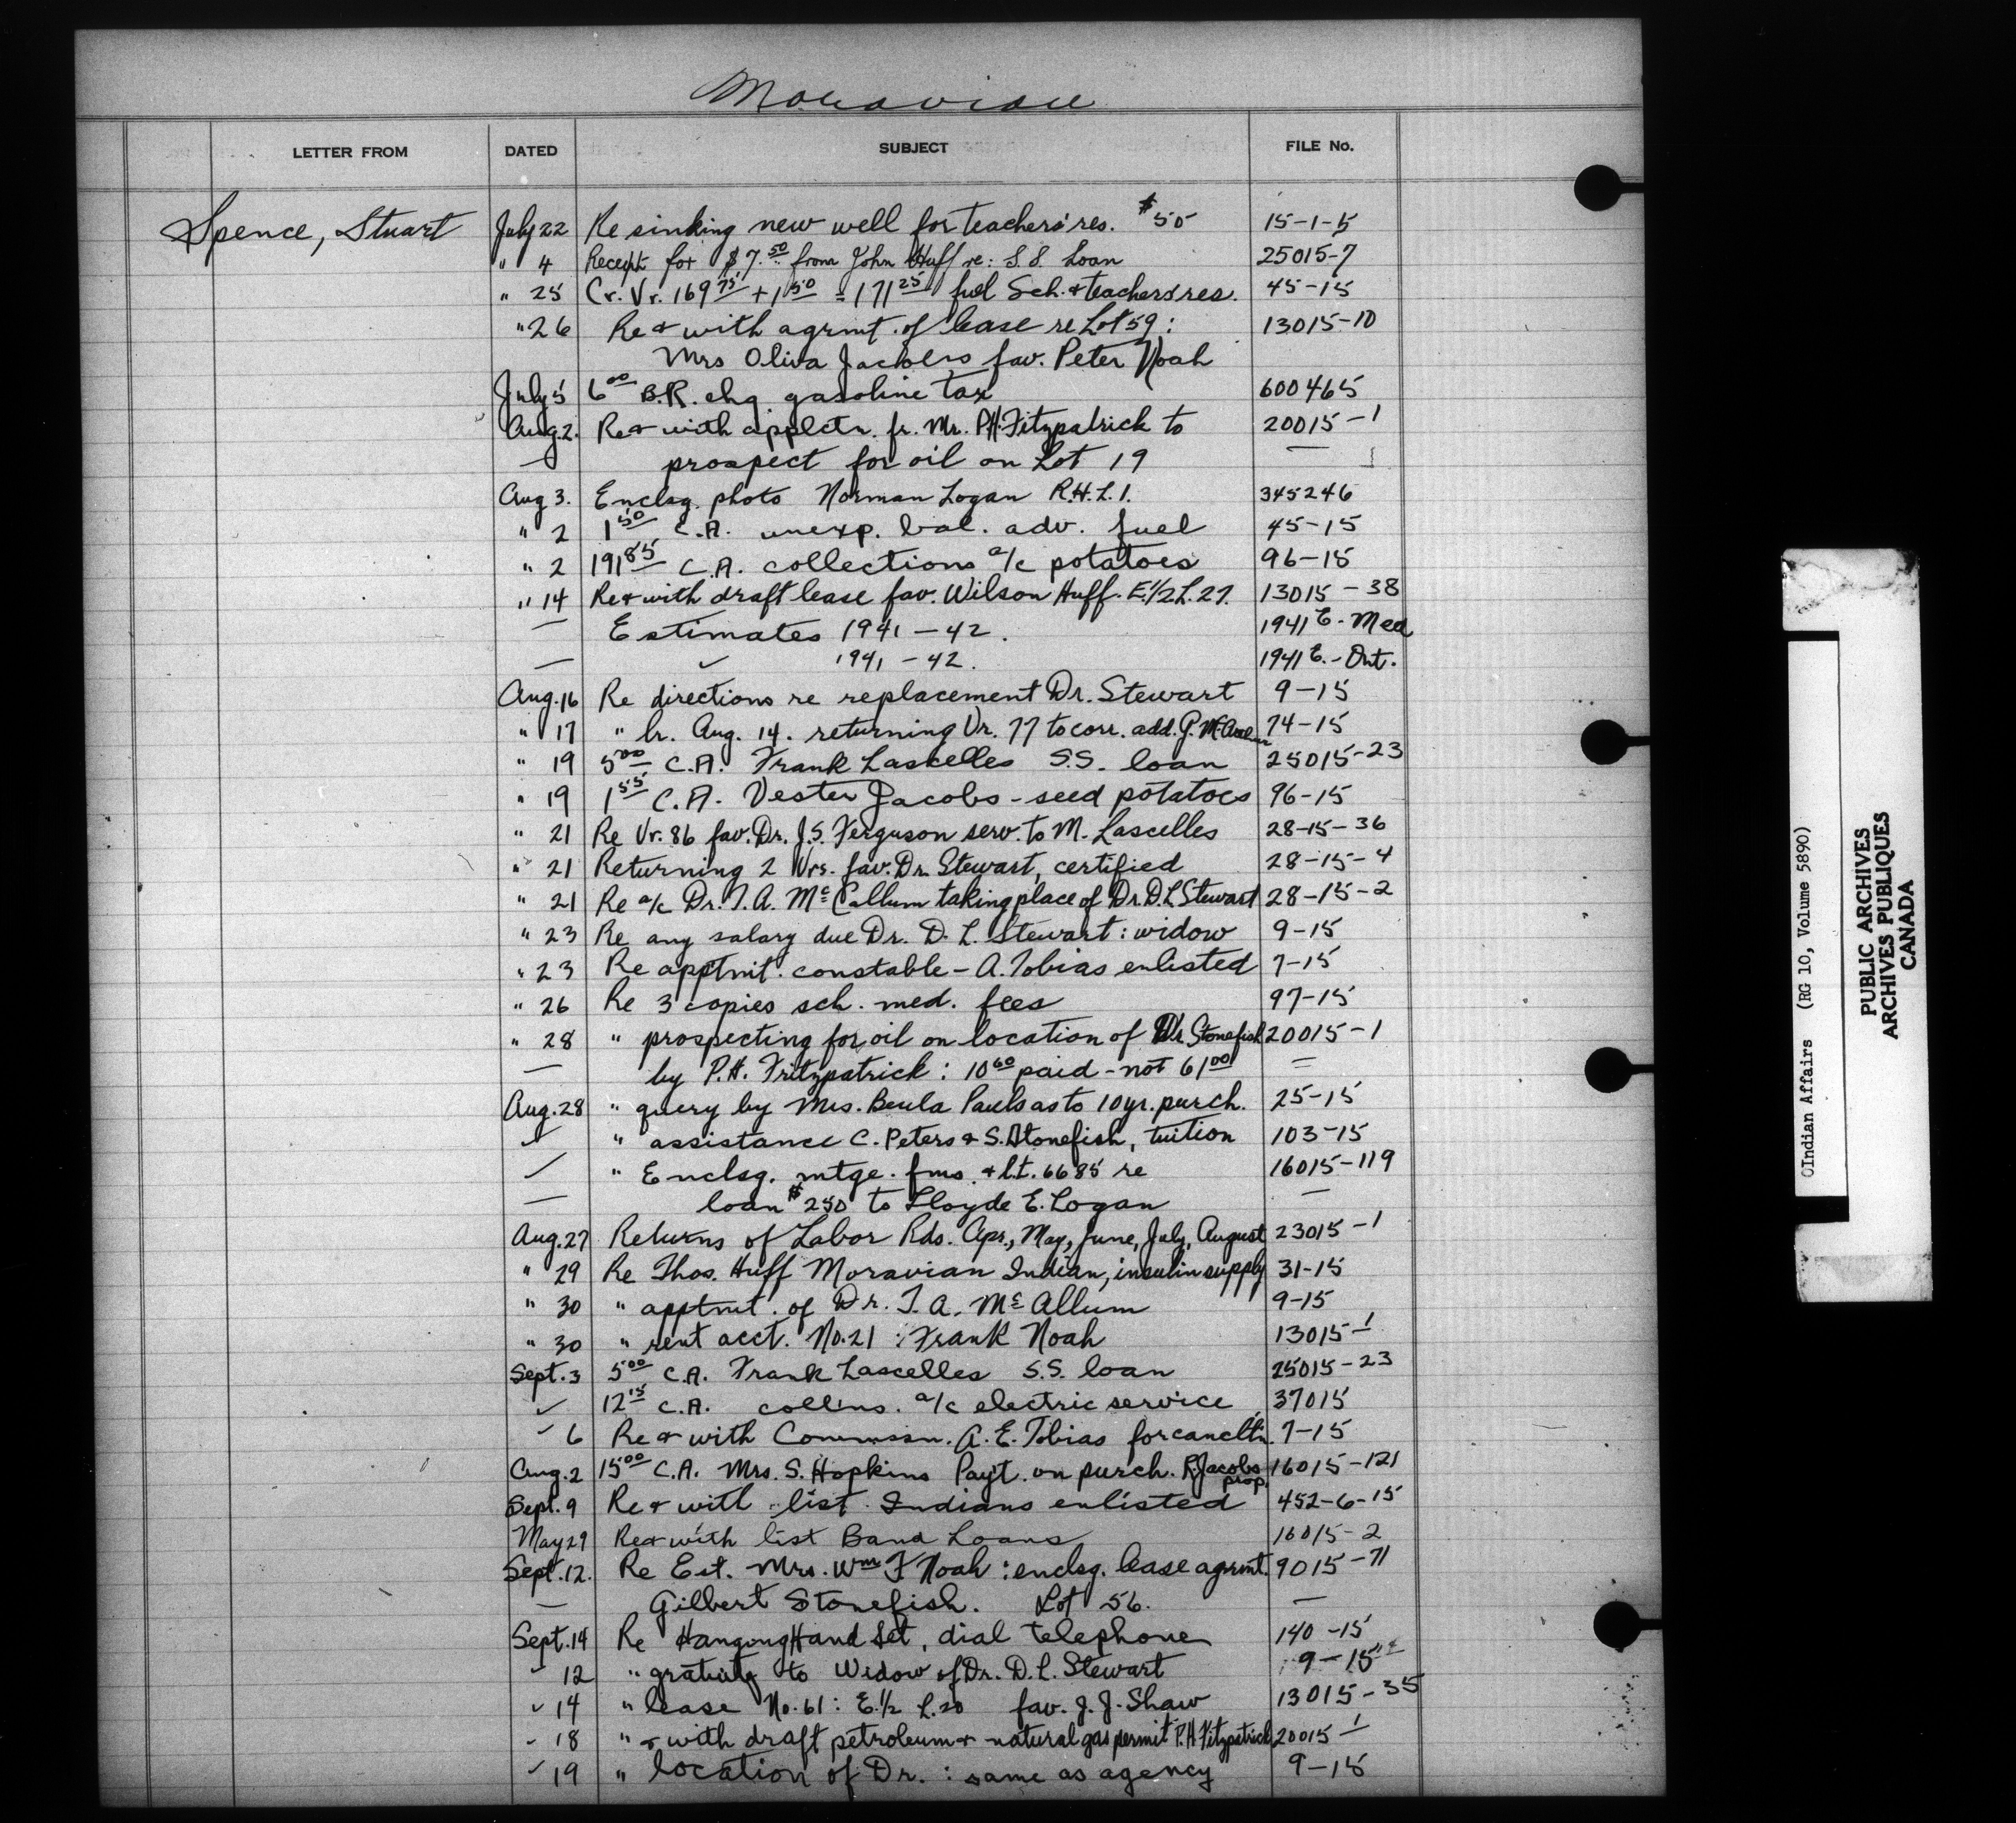 Moravian
LETTER FROM DATED SUBJECT FILE No.
Spence, Stuart July 22 Re sinking new well for teachers' res. $50 15-1-5
" 4 Receipt for $7.50 from John Huff re: S.S. Loan 25015-7
" 25 Cr. Vr. 169 75 + 1 50 = 171 25 fuel Sch. & teachers' res. 45-15
" 26 Re & with agrmt. of lease re Lot 59: 13015-10
Mrs Oliva Jacobs fav. Peter Noah
July 5 6 00 B.R. chq gasoline tax 600465
Aug. 2. Re & with applctn. fr. Mr. P.H. Fitzpatrick to 20015-1
— prospect for oil on Lot 19 —
Aug 3. Enclsg. photo Norman Logan R.H.L.I. 345246
" 2 1 50 C.A. unexp. bal. adv. fuel 45-15
" 2 191 85 C.A. collections a/c potatoes 96-15
" 14 Re & with draft lease fav. Wilson Huff. E.1/2 L.27. 13015-38
— Estimates 1941-42. 1941 E.-Med
— ✓ 1941-42. 1941 E.-Ont.
Aug. 16 Re directions re replacement Dr. Stewart 9-15
" 17 " lr. Aug. 14. returning Vr. 77 to corr. add. G. 74-15
" 19 5 00 C.A. Frank Lascelles S.S. loan 25015-23
" 19 1 55 C.A. Vester Jacobs - seed potatoes 96-15
" 21 Re Vr. 86 fav. Dr. J.S. Ferguson serv. to M. Lascelles 28-15-36
" 21 Returning 2 Vrs. fav. Dr. Stewart, certified 28-15-4
" 21 Re a/c Dr. T.A. McCallum taking place of Dr. D.L Stewart 28-15-2
" 23 Re any salary due Dr. D.L. Stewart: widow 9-15
" 23 Re apptmt. constable - A. Tobias enlisted 7-15
" 26 Re 3 copies sch. med. fees 97-15
" 28 " prospecting for oil on location of Stonefish 20015-1
— by P.H. Fritzpatrick: 10 60 paid - not 61 00 =
Aug. 28 " query by Mrs. Beula Pauls as to 10 yr. purch. 25-15
✓ " assistance C. Peters & S. Stonefish, tuition 103-15
✓ " Enclsg. mtge. fms. & l.t. 6685 re 16015-119
— loan $250 to Lloyde E. Logan —
Aug. 27 Returns of Labor Rds. Apr., May, June, July, August 23015-1
" 29 Re Thos. Huff Moravian Indian, insulin supply 31-15
" 30 " apptmt. of Dr. T.A. McAllum 9-15
" 30 " rent acct. No. 21: Frank Noah 13015-1
Sept. 3 5 00 C.A. Frank Lascelles S.S. loan 25015-23
✓ 12 15 C.A. collns. a/c electric service 37015
✓ 6 Re & with Commssn. A.E. Tobias for cancltn. 7-15
Aug. 2 15 00 C.A. Mrs. S. Hopkins Pay't. on purch. R. Jacobs prop. 16015-121
Sept. 9 Re & with list Indians enlisted 452-6-15
May 29 Re & with list Band Loans 16015-2
Sept. 12. Re Est. Mrs. Wm F Noah: enclsg. lease agrmt. 9015-71
— Gilbert Stonefish. Lot 56. —
Sept. 14 Re Hangong Hand Set, dial telephone 140-15
✓ 12 " gratuity to Widow of Dr. D.L. Stewart 9-15
✓ 14 " lease No. 61: E.1/2 L.20 fav. J.J. Shaw 13015-35
✓ 18 " & with draft petroleum & natural gas permit P.H. Fitzpatrick 20015-1
✓ 19 " location of Dr.: same as agency 9-15
Indian Affairs (RG 10, Volume 5890)
PUBLIC ARCHIVES
ARCHIVES PUBLIQUES
CANADA